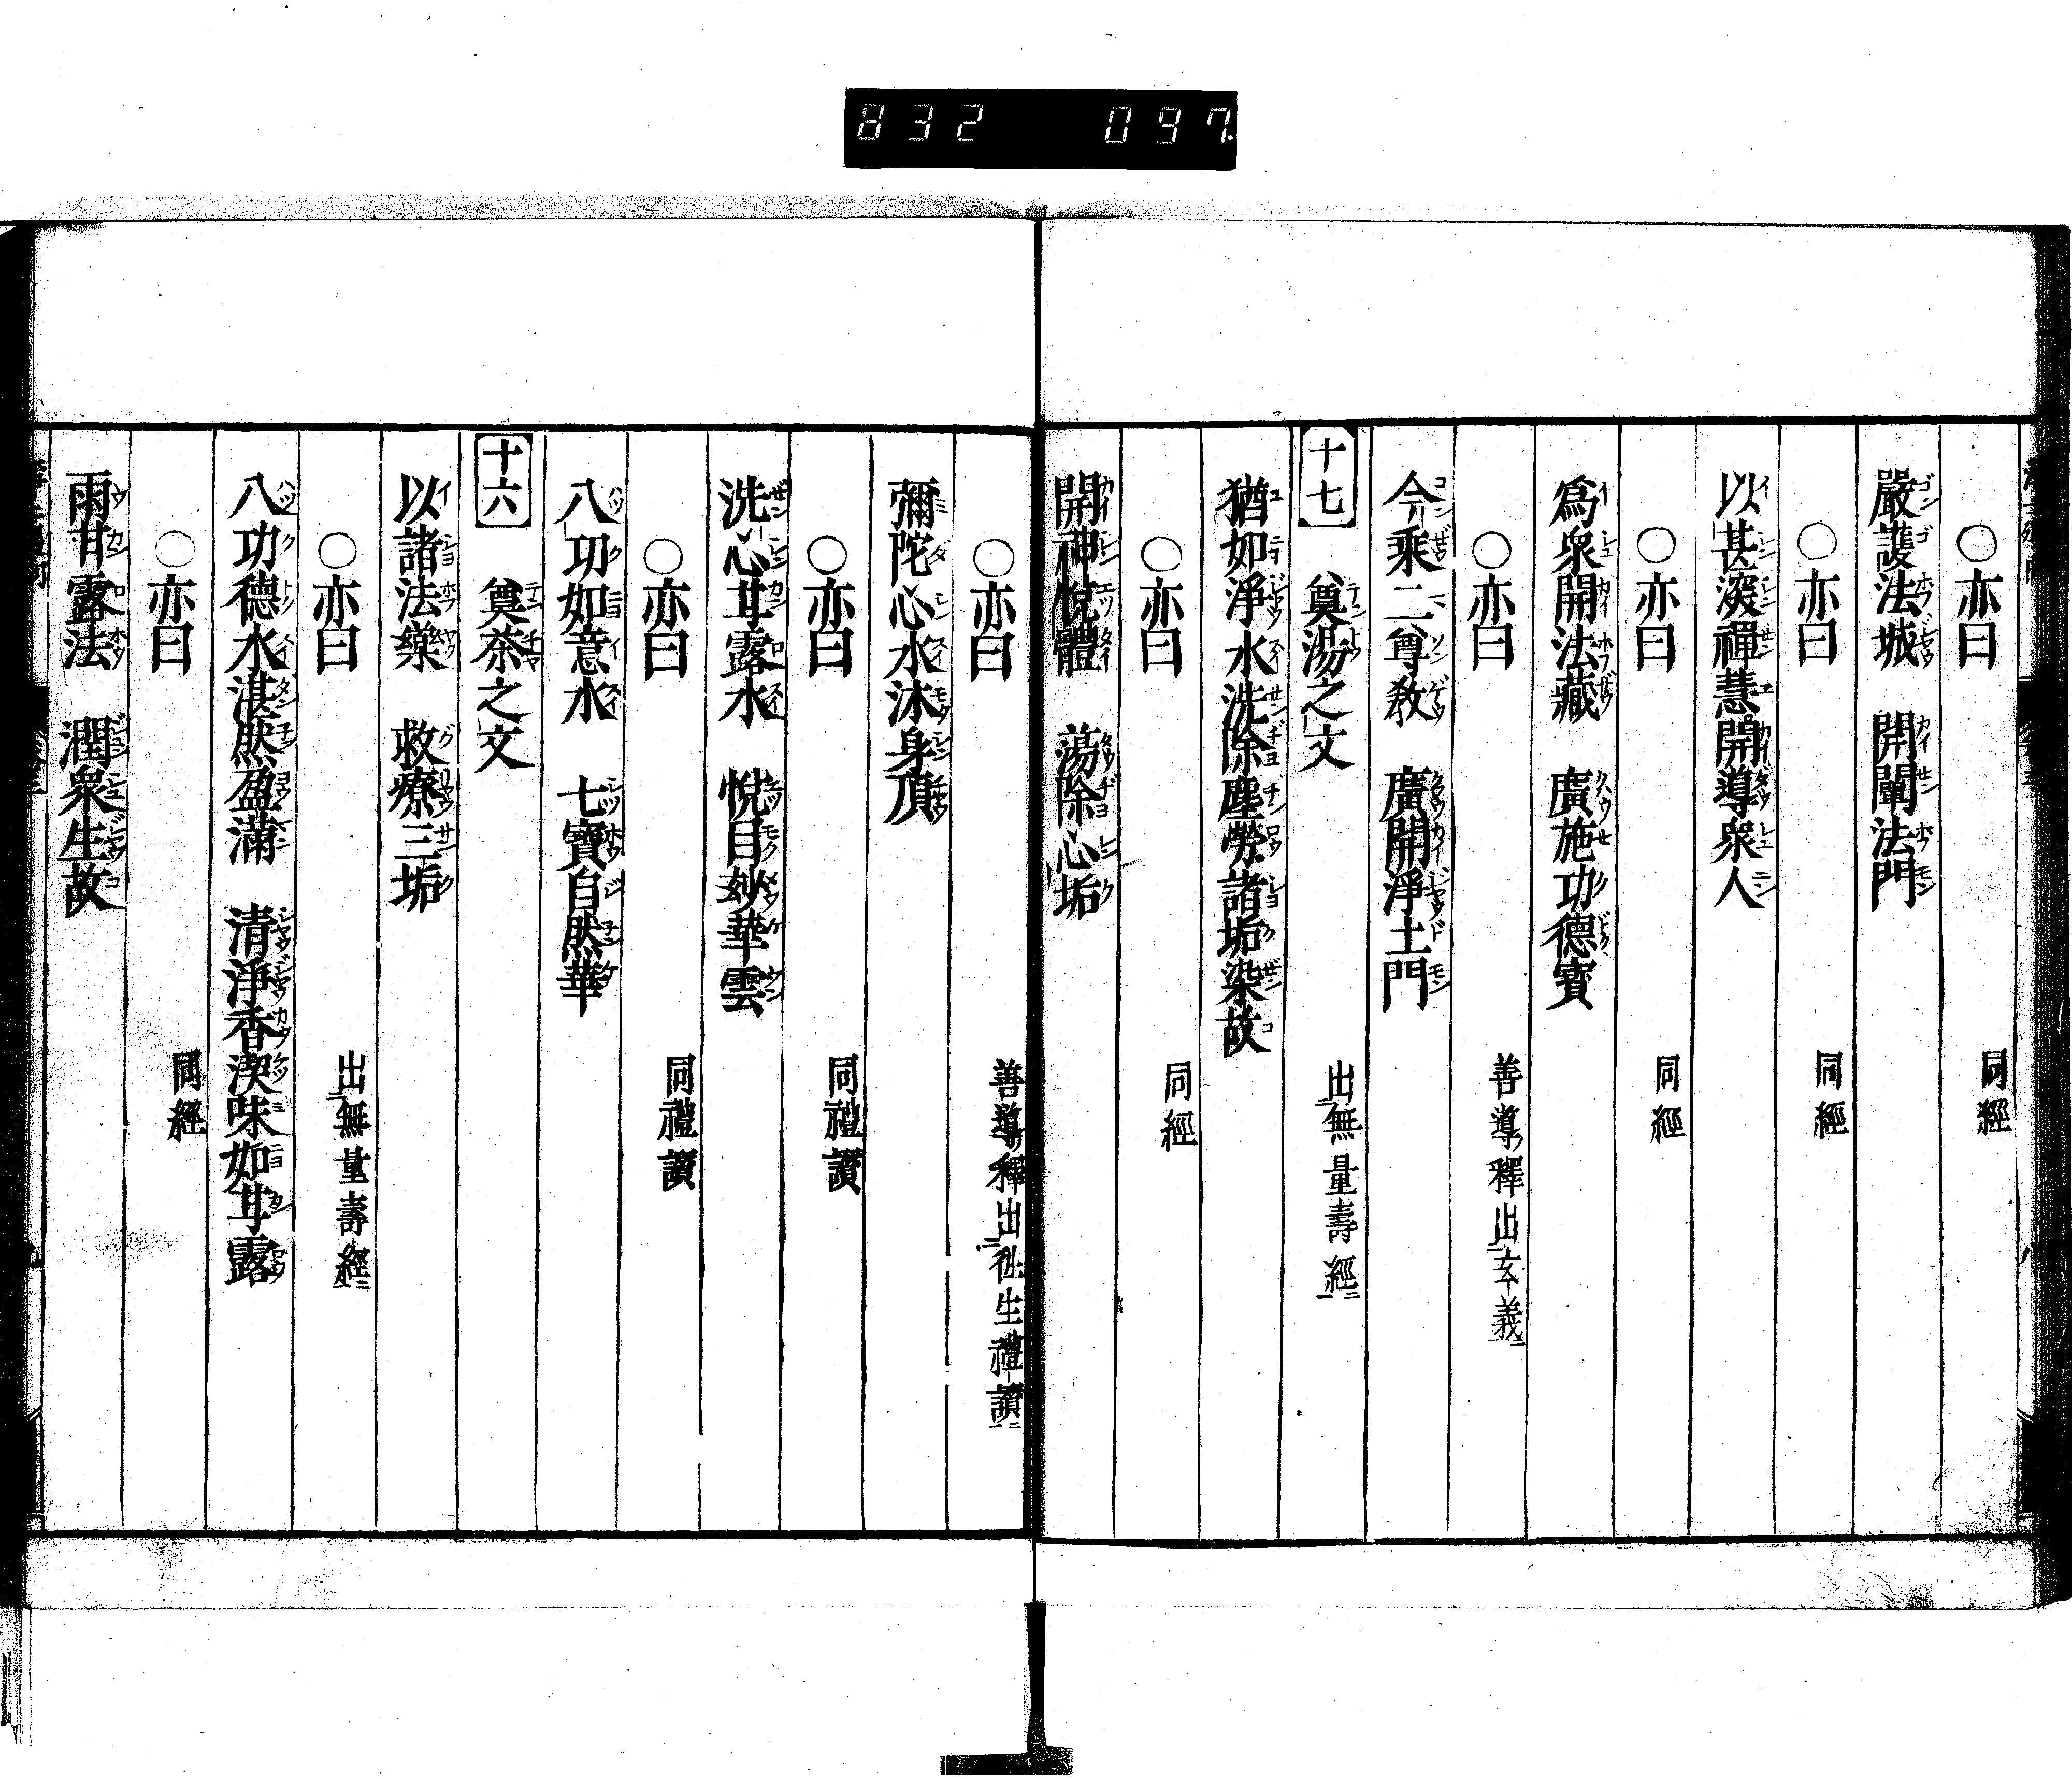 832 097
○亦曰 同經
嚴護法城 開闡法門
○亦曰 同經
以甚深禪慧開導衆人
○亦曰 同經
爲衆開法藏 廣施功德寶
○亦曰 善導釋出玄義
今乘二尊教 廣開淨土門
十七 奠湯之文 出無量壽經
猶如淨水洗除塵勞諸垢染故
○亦曰 同經
開神悅體 蕩除心垢
○亦曰 善導釋出往生禮讃
彌陀心水沐身頂
○亦曰 同禮讃
洗心甘露水 悅目妙華雲
○亦曰 同禮讃
八功如意水 七寶自然華
十六 奠茶之文
以諸法樂 救療三垢
○亦曰 出無量壽經
八功德水湛然盈滿 清淨香潔味如甘露
○亦曰 同經
雨甘露法 潤衆生故